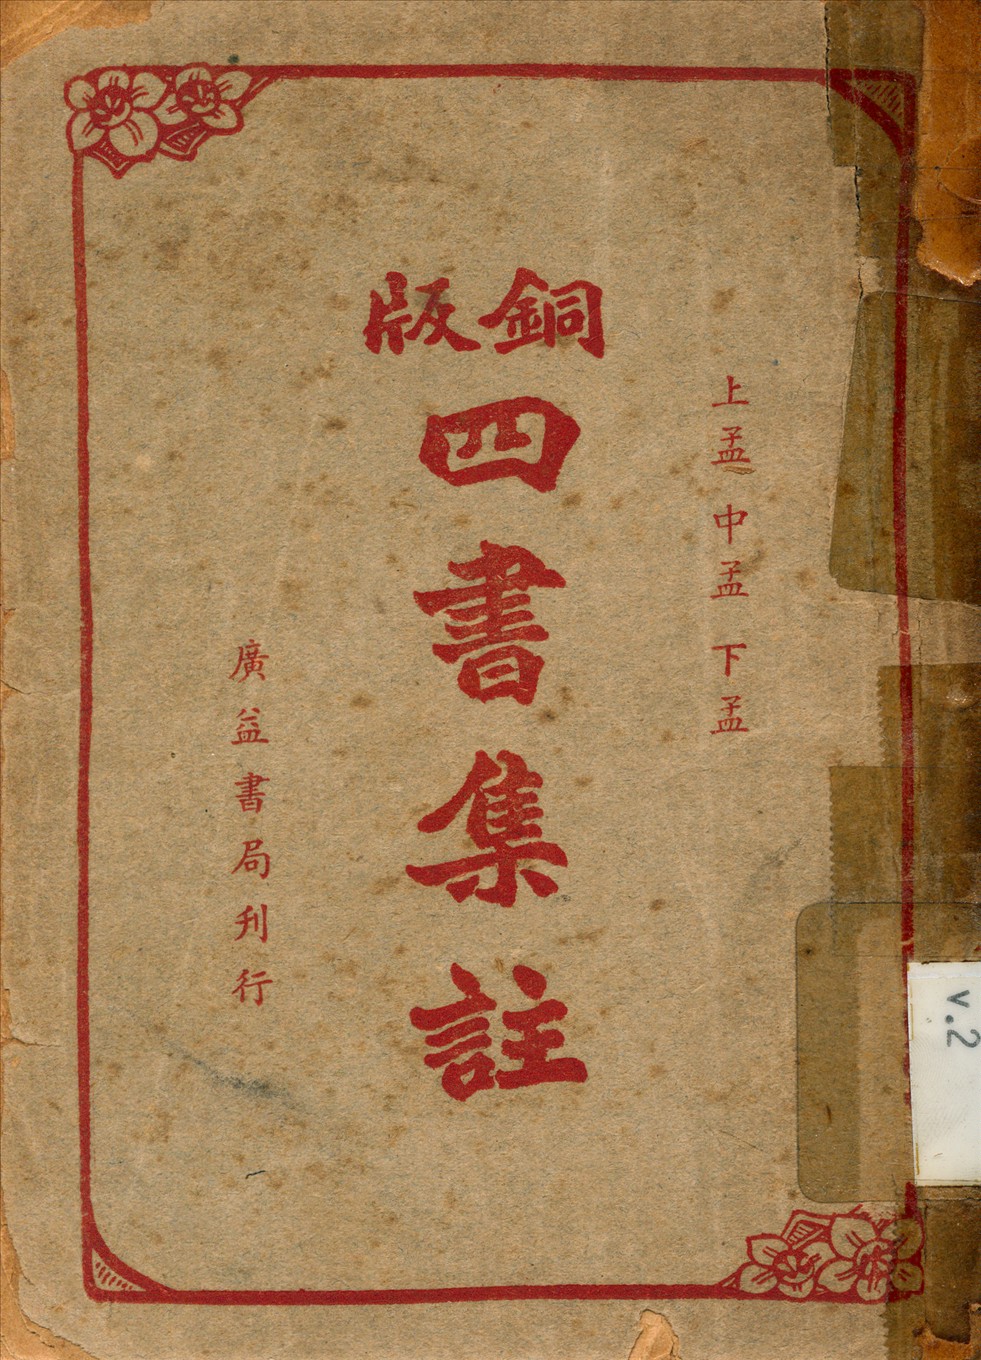 上孟 中孟 下孟
銅版
四書集註
廣益書局刋行
v.2